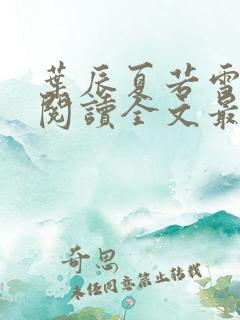 葉辰夏若雪
閱讀全文最
奇思
未经同意禁止转载